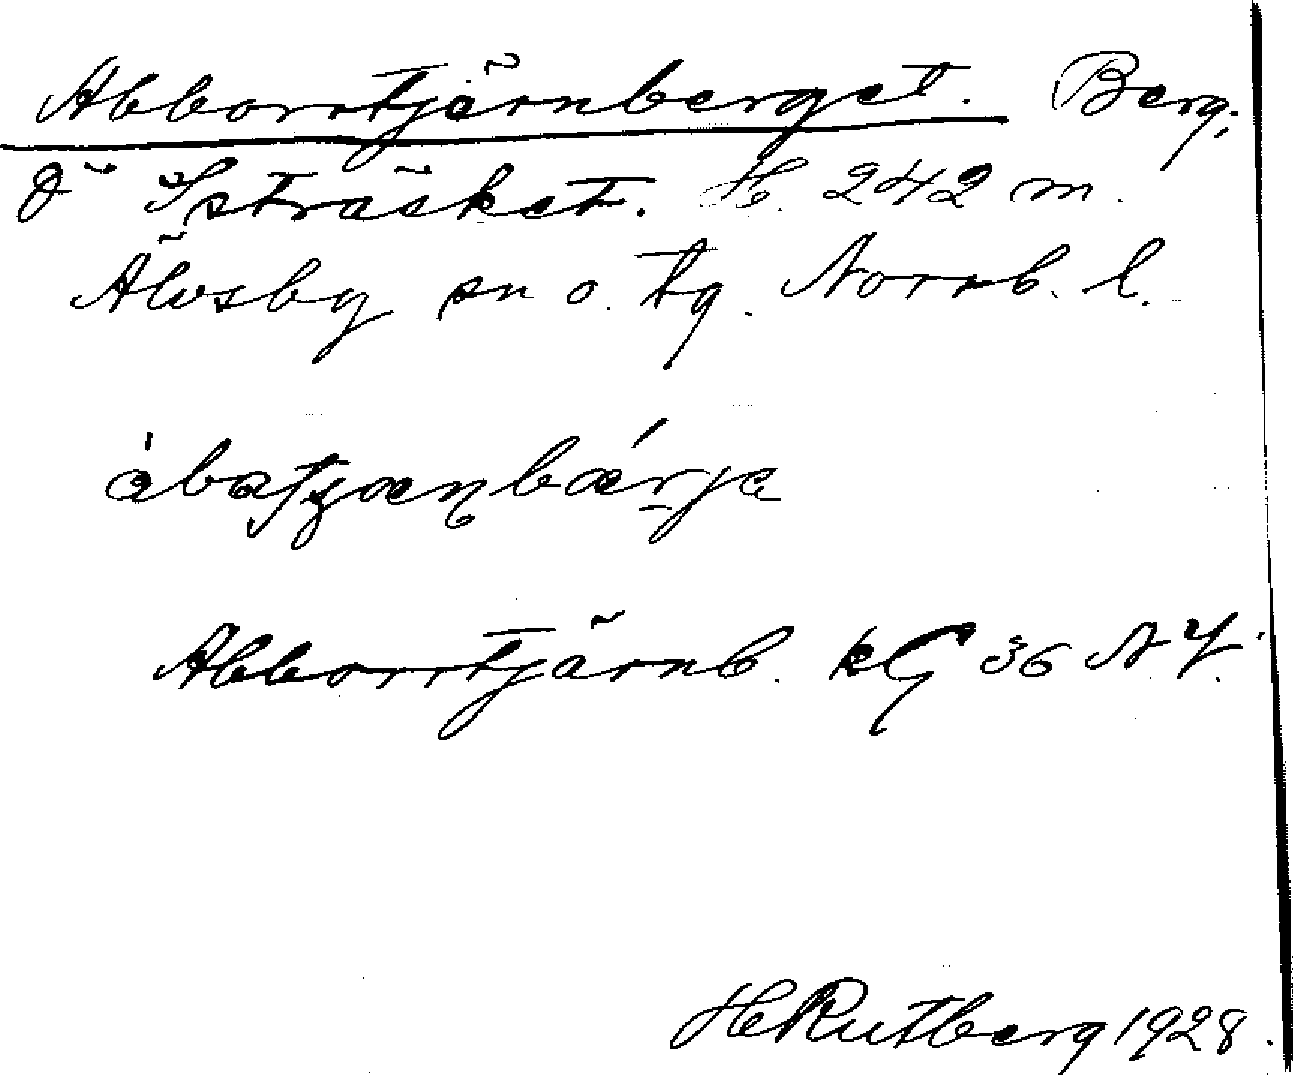 Abborrtjärnberget. Berg;
Ö Isträsket. H. 242 m.
Älvsby sn o. tg. Norrb. l.
Abborrtjärnb. kG 36 N.Y.
H Rutberg 1928.